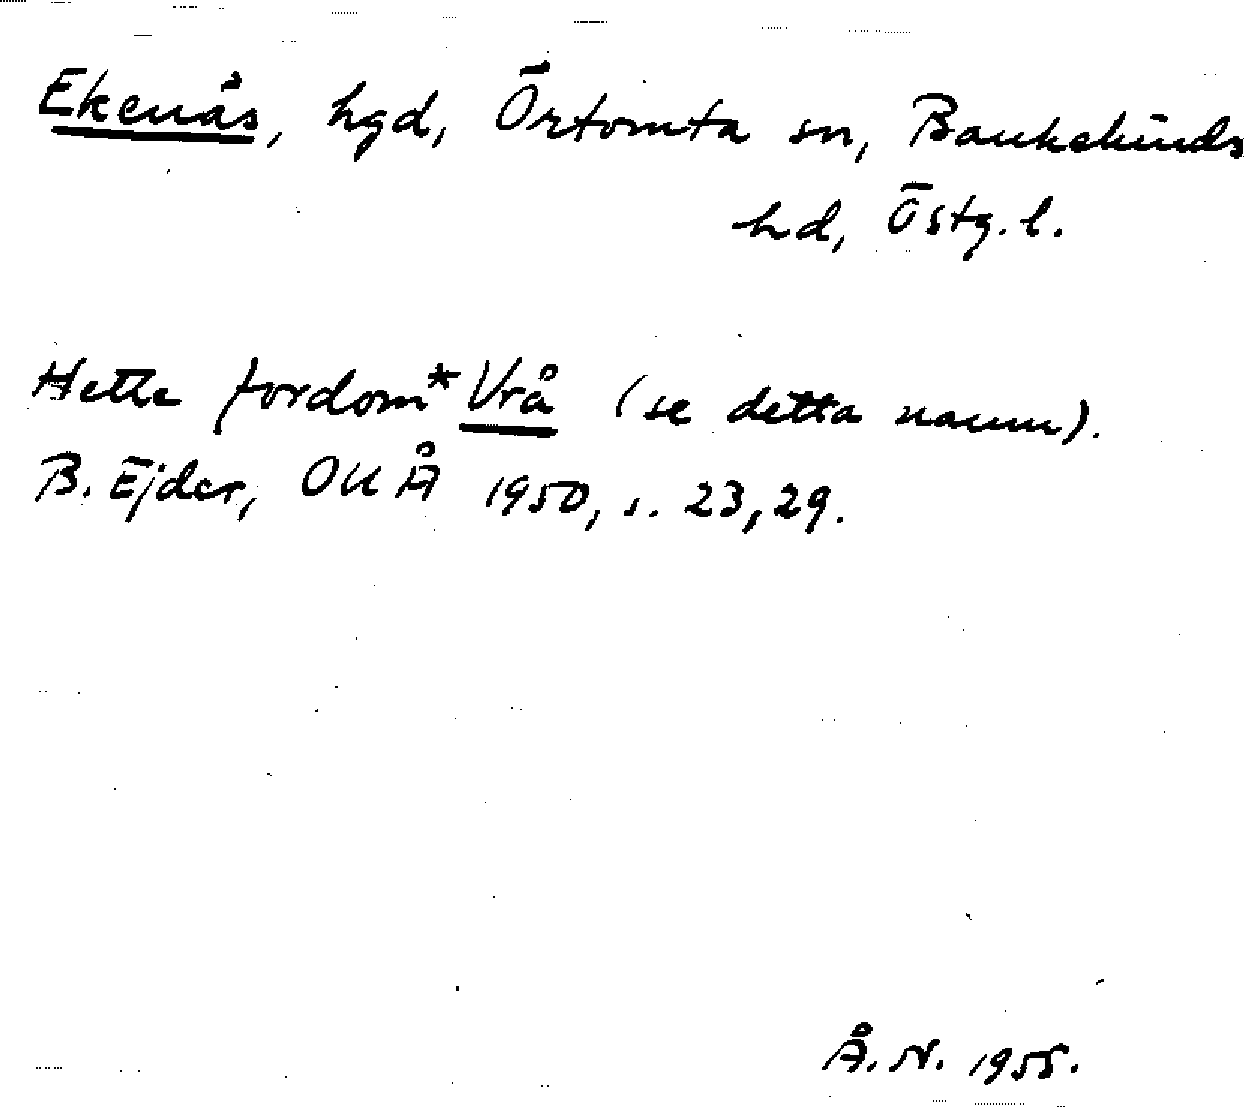 Ekenäs, hgd, Örtomta sn, Bankekinds
hd, Östg. l.
Hette fordom *Vrå (se detta namn).
B. Ejder, OUÅ 1950, s. 23, 29.
Å. N. 1955.